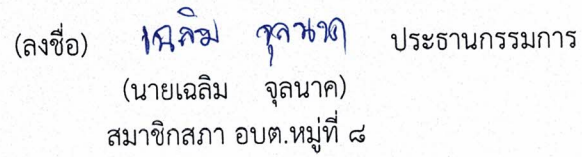 (ลงชื่อ) เฉลิม จุลนาค ประธานกรรมการ
(นายเฉลิม จุลนาค)
สมาชิกสภา อบต.หมู่ที่ ๘